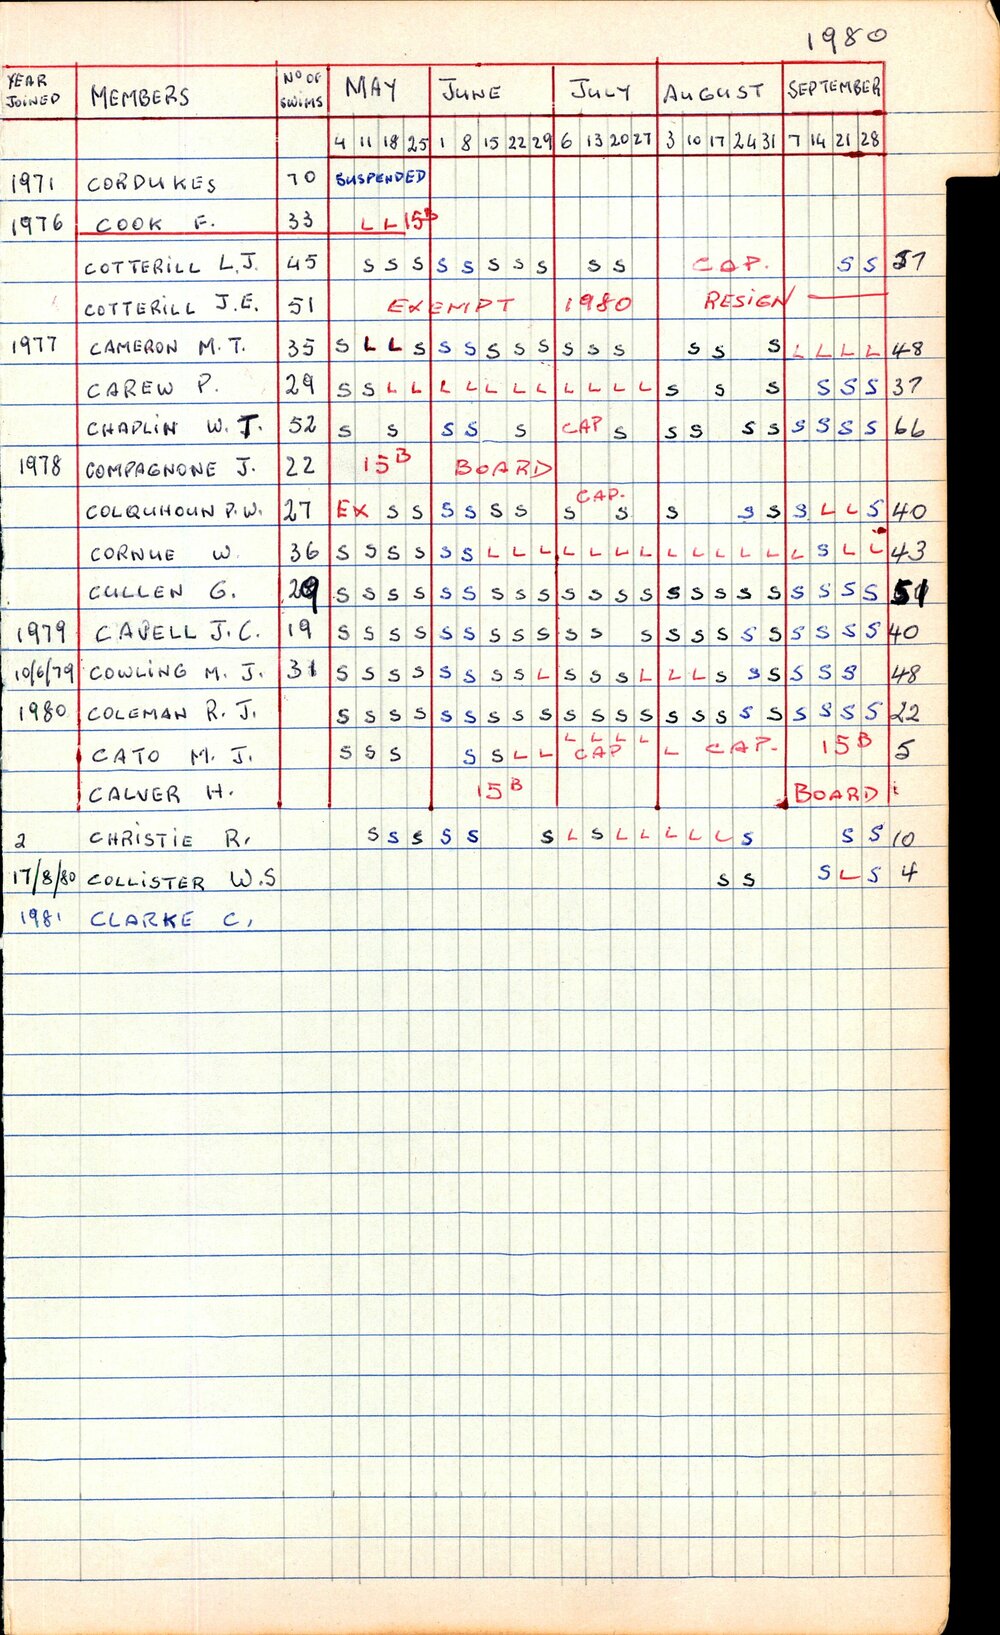 1980
YEAR JOINED MEMBERS No OF SWIMS MAY JUNE JULY AUGUST SEPTEMBER
4 11 18 25 1 8 15 22 29 6 13 20 27 3 10 17 24 31 7 14 21 28
1971 CORDUKES 70 SUSPENDED
1976 COOK F. 33 L L 15B
COTTERILL L.J. 45 S S S S S S S S S S CAP. S S 57
COTTERILL J.E. 51 EXEMPT 1980 RESIGN
1977 CAMERON M.T. 35 S L L S S S S S S S S S S S S L L L L 48
CAREW P. 29 S S L L L L L L L L L L L S S S S S S 37
CHAPLIN W.J. 52 S S S S S CAP S S S S S S S S S 66
1978 COMPAGNONE J. 22 15B BOARD
COLQUHOUN P.W. 27 EX S S S S S S S CAP. S S S S S L L S 40
CORNUE W. 36 S S S S S S L L L L L L L L L L L L L S L L 43
CULLEN G. 29 S S S S S S S S S S S S S S S S S S S S S S 51
1979 CAVELL J.C. 19 S S S S S S S S S S S S S S S S S S S S S 40
10/6/79 COWLING M.J. 31 S S S S S S S S L S S S L L L S S S S S S 48
1980 COLEMAN R.J. S S S S S S S S S S S S S S S S S S S S S S 22
CATO M.J. S S S S S L L L L L L CAP L CAP. 15B 5
CALVER H. 15B BOARD
2 CHRISTIE R. S S S S S S L S L L L L L S S S 10
17/8/80 COLLISTER W.S S S S L S 4
1981 CLARKE C.